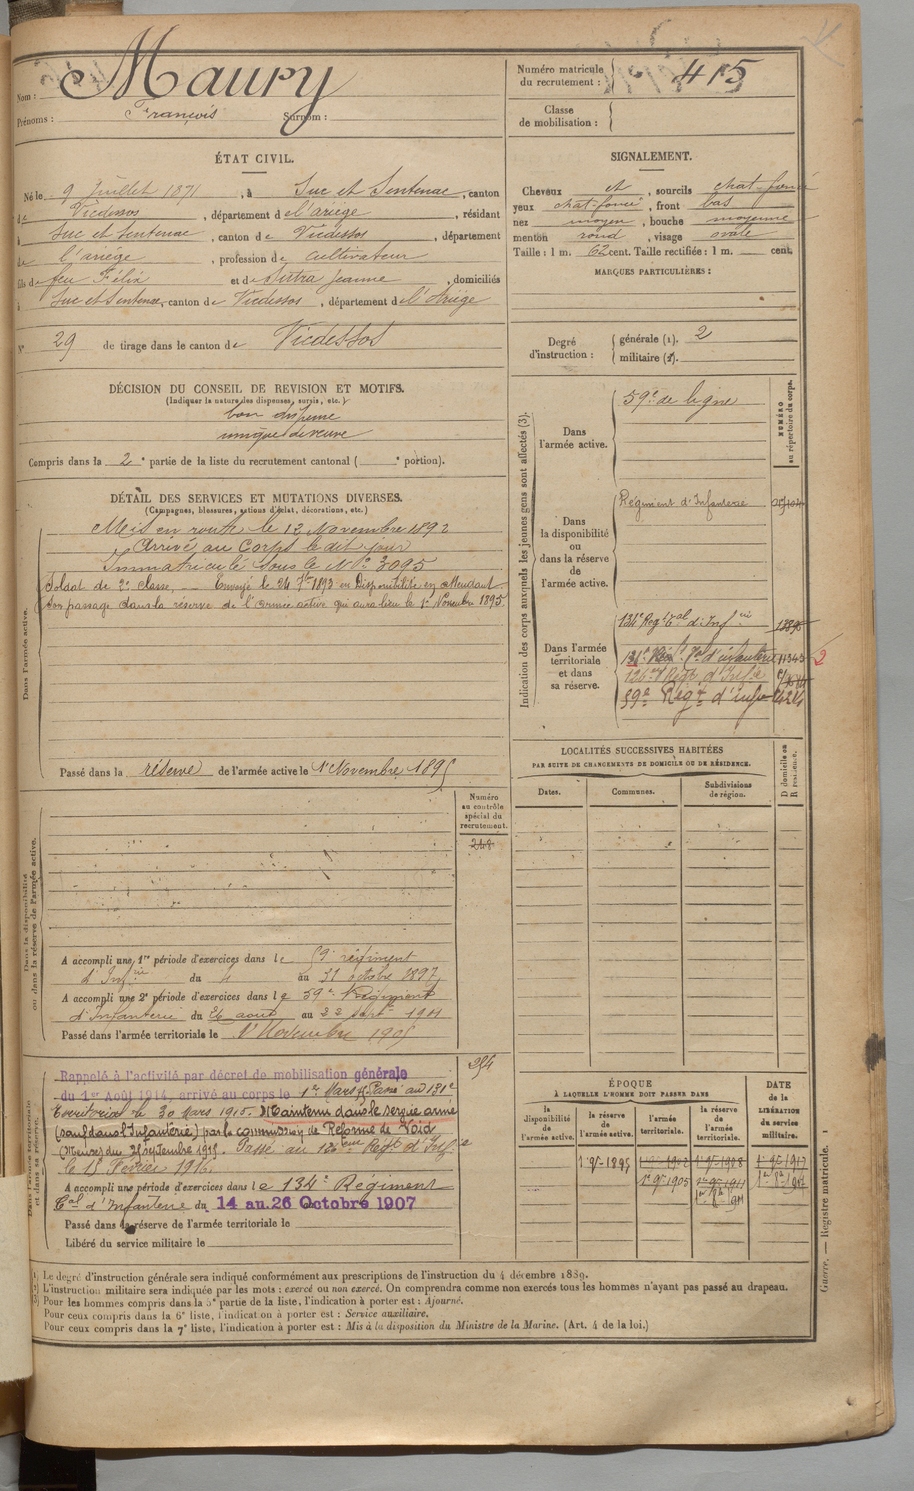 Nom : Maury
Prénoms : François Surnom :
Numéro matricule du recrutement : 415
Classe de mobilisation :
ÉTAT CIVIL.
Né le 9 Juillet 1871, à Suc et Sentenac, canton
de Vicdessos, département de l'ariège, résidant
à Suc et Sentenac, canton de Vicdessos, département
de l'ariège, profession de Cultivateur
fils de feu Félix et de Jeanne, domiciliés
à Suc et Sentenac, canton de Vicdessos, département de l'Ariège
N° 29 de tirage dans le canton de Vicdessos
SIGNALEMENT.
Cheveux et, sourcils chat-foncé
yeux chat-foncé, front bas
nez moyen, bouche moyenne
menton rond, visage ovale
Taille : 1 m. 62 cent. Taille rectifiée : 1 m. cent.
MARQUES PARTICULIÈRES :
Degré d'instruction : générale (1). 2
militaire (2).
DÉCISION DU CONSEIL DE REVISION ET MOTIFS.
(Indiquer la nature des dispenses, sursis, etc.)
bon dispensé
unique de veuve
Compris dans la 2e partie de la liste du recrutement cantonal ( e portion).
DÉTAIL DES SERVICES ET MUTATIONS DIVERSES.
(Campagnes, blessures, actions d'éclat, décorations, etc.)
Dans l'armée active.
Mis en route le 12 Novembre 1892
Arrivé au Corps le dit jour
Immatriculé sous le N° 3095
Soldat de 2e Classe, — Envoyé le 24 7bre 1893 en Disponibilité en attendant
son passage dans la réserve de l'armée active qui aura lieu le 1er Novembre 1895
Passé dans la réserve de l'armée active le 1er Novembre 1895
Indication des corps auxquels les jeunes gens sont affectés (3).
NUMÉRO au répertoire du corps.
Dans l'armée active.
59e de ligne
Dans la disponibilité ou dans la réserve de l'armée active.
Régiment d'Infanterie
Dans l'armée territoriale et dans sa réserve.
134e Régt tal d'Infie
126e Régt d'Infie
59e Régt d'infie
LOCALITÉS SUCCESSIVES HABITÉES
PAR SUITE DE CHANGEMENTS DE DOMICILE OU DE RÉSIDENCE.
Dates. Communes. Subdivisions de région. D domicile ou R résidence.
Dans la disponibilité ou dans la réserve de l'armée active.
Numéro au contrôle spécial du recrutement.
248
A accompli une 1re période d'exercices dans le 59 régiment
d'Infie du 4 au 31 octobre 1897
A accompli une 2e période d'exercices dans le 59e Régiment
d'Infanterie du 26 août au 22 septbre 1901
Passé dans l'armée territoriale le 1er Novembre 1905
Dans l'armée territoriale et dans sa réserve.
254
Rappelé à l'activité par décret de mobilisation générale
du 1er Août 1914, arrivé au corps le 1er Mars 15. Passé au 131e
Territorial le 30 mars 1915. Maintenu dans le service armé
(sauf dans l'Infanterie) par la commission de Réforme de Void
(Meuse) du 25 septembre 1915. Passé au 126eme Régt d'Infie
le 15 Février 1916.
A accompli une période d'exercices dans le 134e Régiment
tal d'Infanterie du 14 au 26 Octobre 1907
Passé dans la réserve de l'armée territoriale le
Libéré du service militaire le
ÉPOQUE
À LAQUELLE L'HOMME DOIT PASSER DANS
la disponibilité de l'armée active. la réserve de l'armée active. l'armée territoriale. la réserve de l'armée territoriale.
DATE de la LIBÉRATION du service militaire.
1er 9bre 1895 1er 9bre 1902 1er 9bre 1908 1er 9bre 1917
1er 9bre 1905 1er 9bre 1911
(1) Le degré d'instruction générale sera indiqué conformément aux prescriptions de l'instruction du 4 décembre 1889.
(2) L'instruction militaire sera indiquée par les mots : exercé ou non exercé. On comprendra comme non exercés tous les hommes n'ayant pas passé au drapeau.
(3) Pour les hommes compris dans la 5e partie de la liste, l'indication à porter est : Ajourné.
Pour ceux compris dans la 6e liste, l'indication à porter est : Service auxiliaire.
Pour ceux compris dans la 7e liste, l'indication à porter est : Mis à la disposition du Ministre de la Marine. (Art. 4 de la loi.)
Guerre. — Registre matricule.